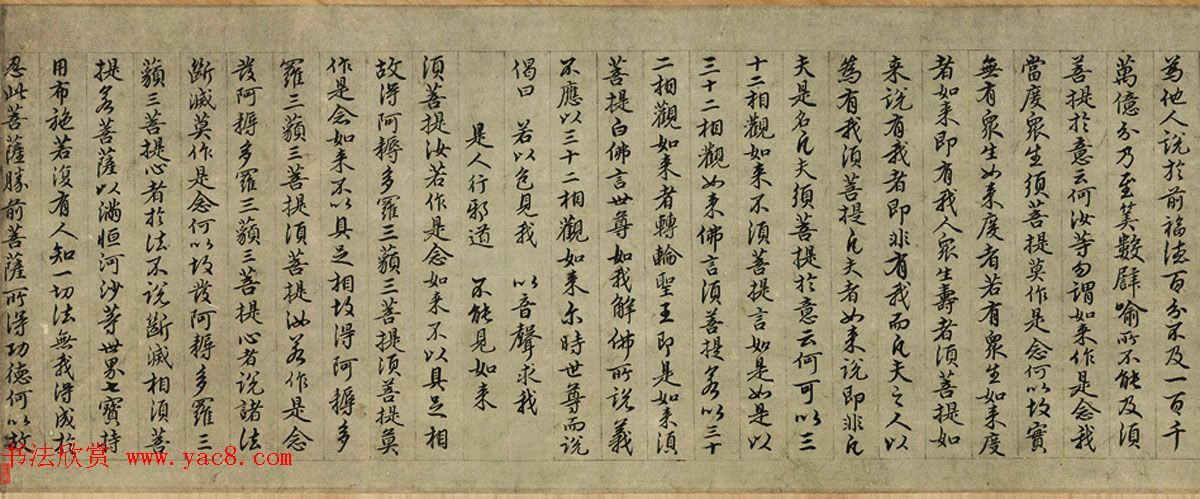 為他人說於前福德百分不及一百千
萬億分乃至筭數譬喻所不能及須
菩提於意云何汝等勿謂如來作是念我
當度眾生須菩提莫作是念何以故實
無有眾生如來度者若有眾生如來度
者如來即有我人眾生壽者須菩提如
來說有我者即非有我而凡夫之人以
為有我須菩提凡夫者如來說即非凡
夫是名凡夫須菩提於意云何可以三
十二相觀如來不須菩提言如是如是以
三十二相觀如來佛言須菩提若以三十
二相觀如來者轉輪聖王即是如來須
菩提白佛言世尊如我解佛所說義
不應以三十二相觀如來尒時世尊而說
偈曰 若以色見我 以音聲求我
是人行邪道 不能見如來
須菩提汝若作是念如來不以具足相
故得阿耨多羅三藐三菩提須菩提莫
作是念如來不以具足相故得阿耨多
羅三藐三菩提須菩提汝若作是念
發阿耨多羅三藐三菩提心者說諸法
斷滅莫作是念何以故發阿耨多羅三
藐三菩提心者於法不說斷滅相須菩
提若菩薩以滿恒河沙等世界七寶持
用布施若復有人知一切法無我得成於
忍此菩薩勝前菩薩所得功德何以故
书法欣赏 www.yac8.com